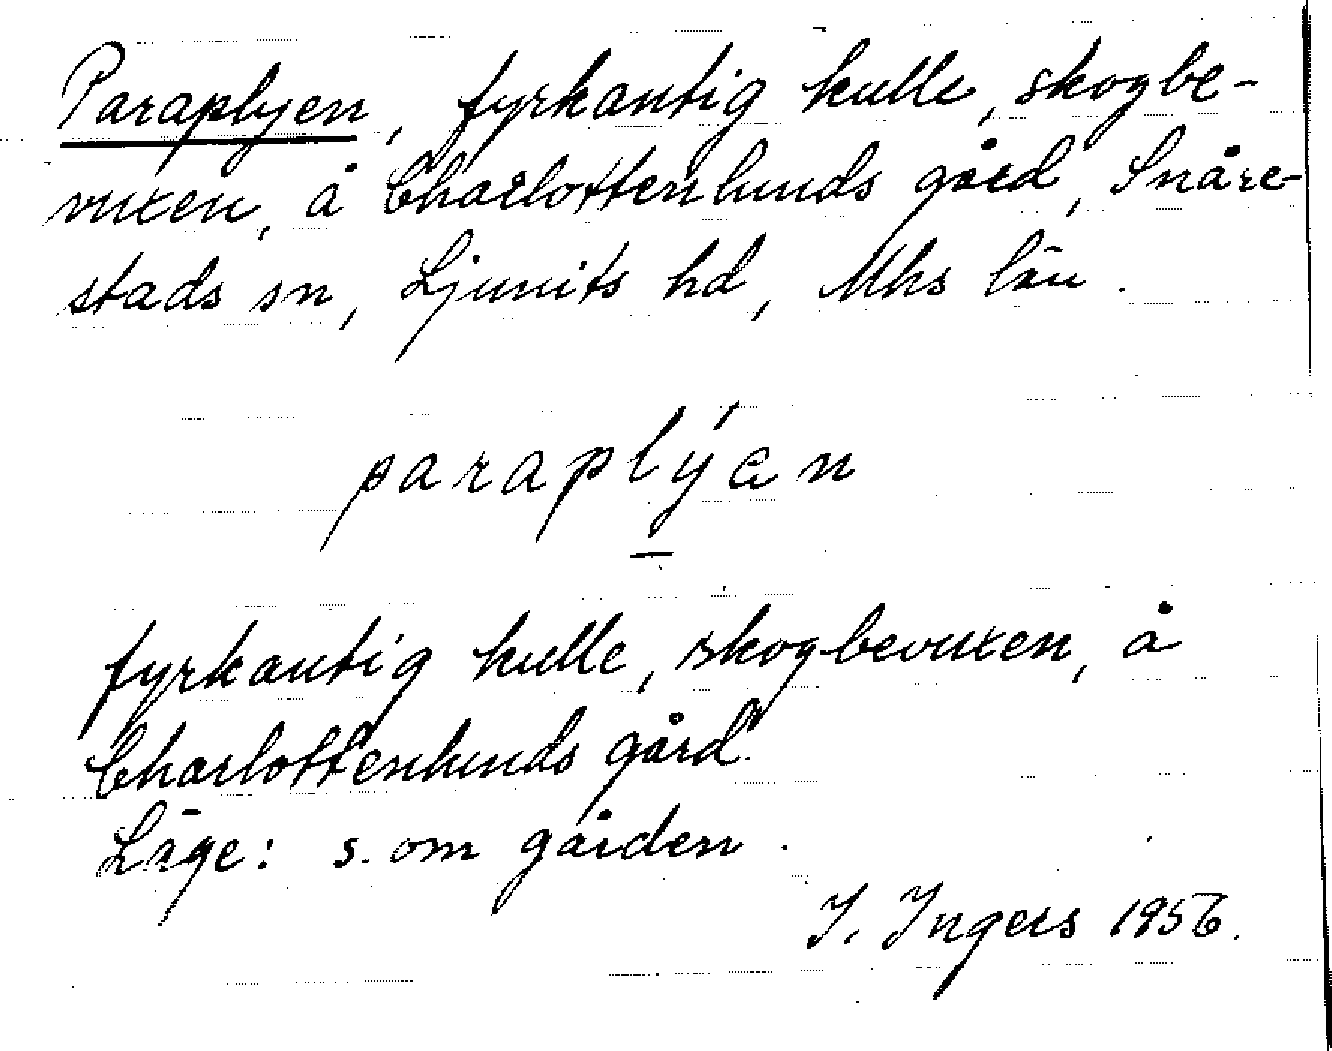 Paraplyen, fyrkantig kulle, skogbe-
vuxen, å Charlottenlunds gård, Snåre-
stads sn, Ljunits hd, Mhs län.
paraplýən
fyrkantig kulle, skogbevuxen, å
Charlottenlunds gård.
Läge: s. om gården.
I. Ingers 1956.